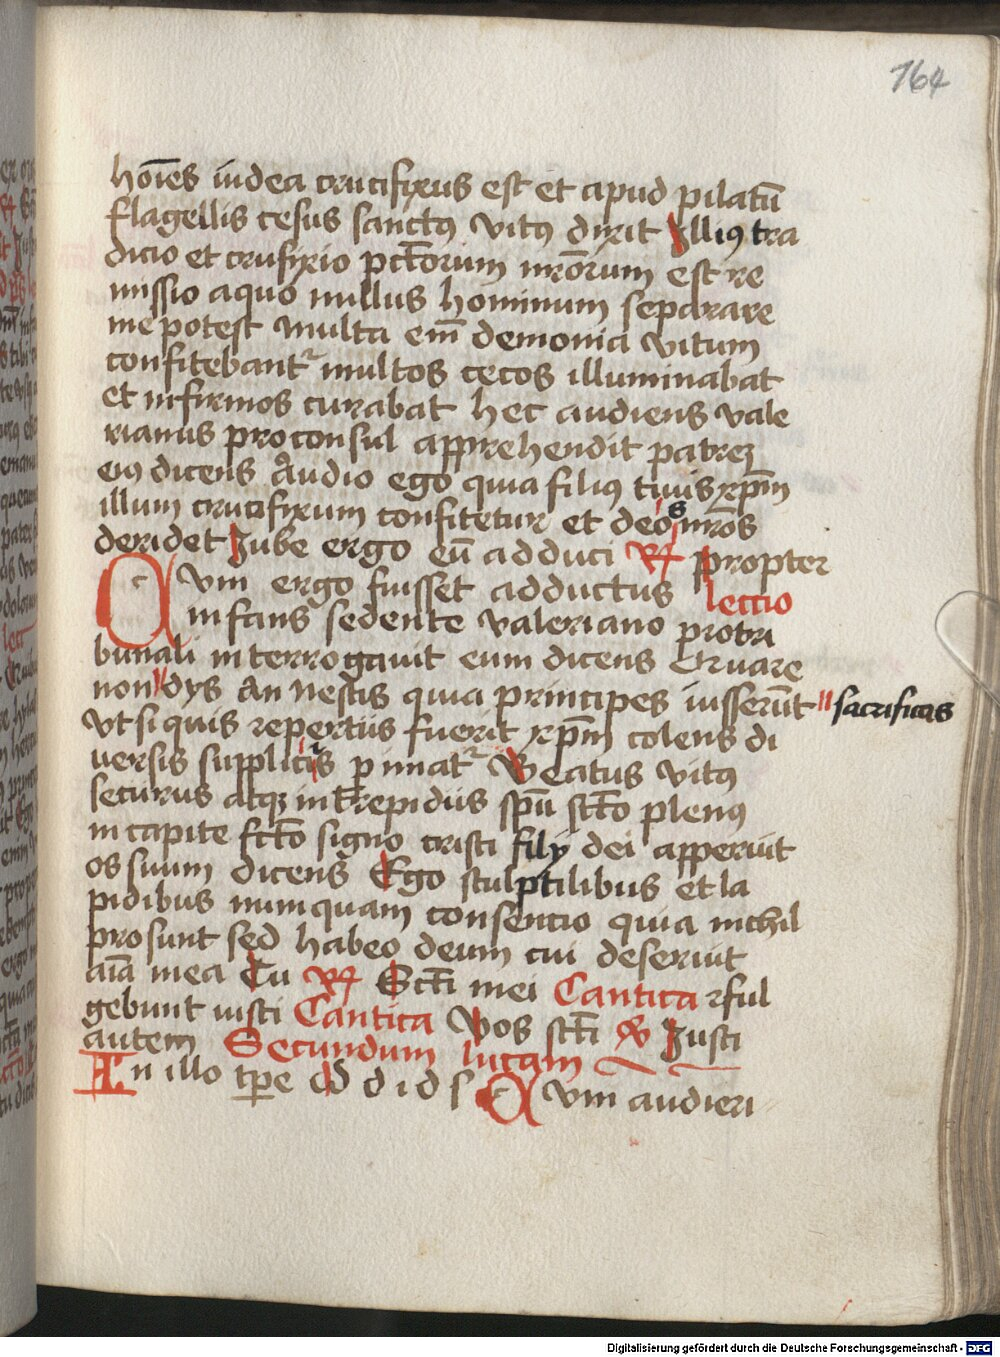 764
hoīes iudea crucifixus est et apud pilatū
flagellis cesus sanctꝯ vitꝯ dixit Illiꝯ tra
dicio et crufixio pctōrum nrōrum est re
missio aquo nullus hominum separare
me potest multa em̄ demonia vitum
confitebant᷑ multos cecos illuminabat
et infirmos curabat hec audiens vale
rianus proconsul apprehendit patreꝫ
eiꝯ dicens Audio ego quia filiꝯ tuus xp̄m
illum crucifixum confitetur et deos nrōs
deridet Iube ergo eū adduci ℟ propter
Cum ergo fuisset adductus lectio
infans sedente valeriano protri
bunali interrogauit eum dicens Quare
non dys an nestis quia principes iusserūt sacrificas
vt si quis repertus fuerit xp̄m colens di
uersis supplicijs puniat᷑ Beatus vitꝯ
securus atqꝫ intrepidus spū sctō plenꝯ
in capite fctō signo cristi filij dei apperuit
os suum dicens Ego sculptilibus et la
pidibus numquam consencio quia nichil
prosunt sed habeo deum cui deseruit
aīa mea Tu ℟ Sctī mei Cantica rful
gebunt iusti Cantica Vos sctī ℣ Iusti
autem Secundum lucam
In illo tp̄e d d i d s Cum audieri
Digitalisierung gefördert durch die Deutsche Forschungsgemeinschaft - DFG